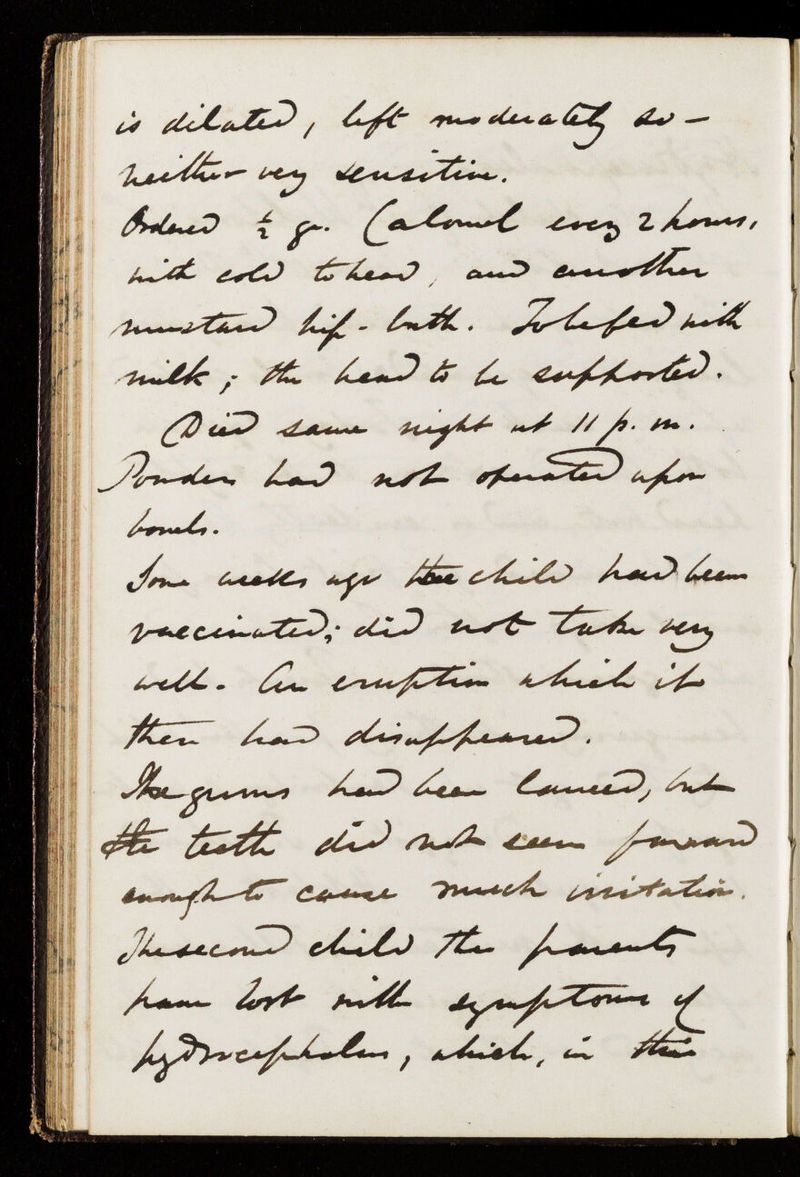 is dilated, left moderately so —
neither very sensitive.
Ordered ½ gr. Calomel every 2 hours,
with cold to head, and another
mustard hip-bath. To be fed with
milk; the head to be supported.
Died same night at 11 p. m.
Powders had not operated upon
bowels.
Some weeks ago the child had been
vaccinated; did not take very
well. An eruption which it
then had disappeared.
The gums had been lanced, but
the teeth did not seem forward
enough to cause much irritation.
The second child the parents
have lost with symptoms of
hydrocephalus, which, in this